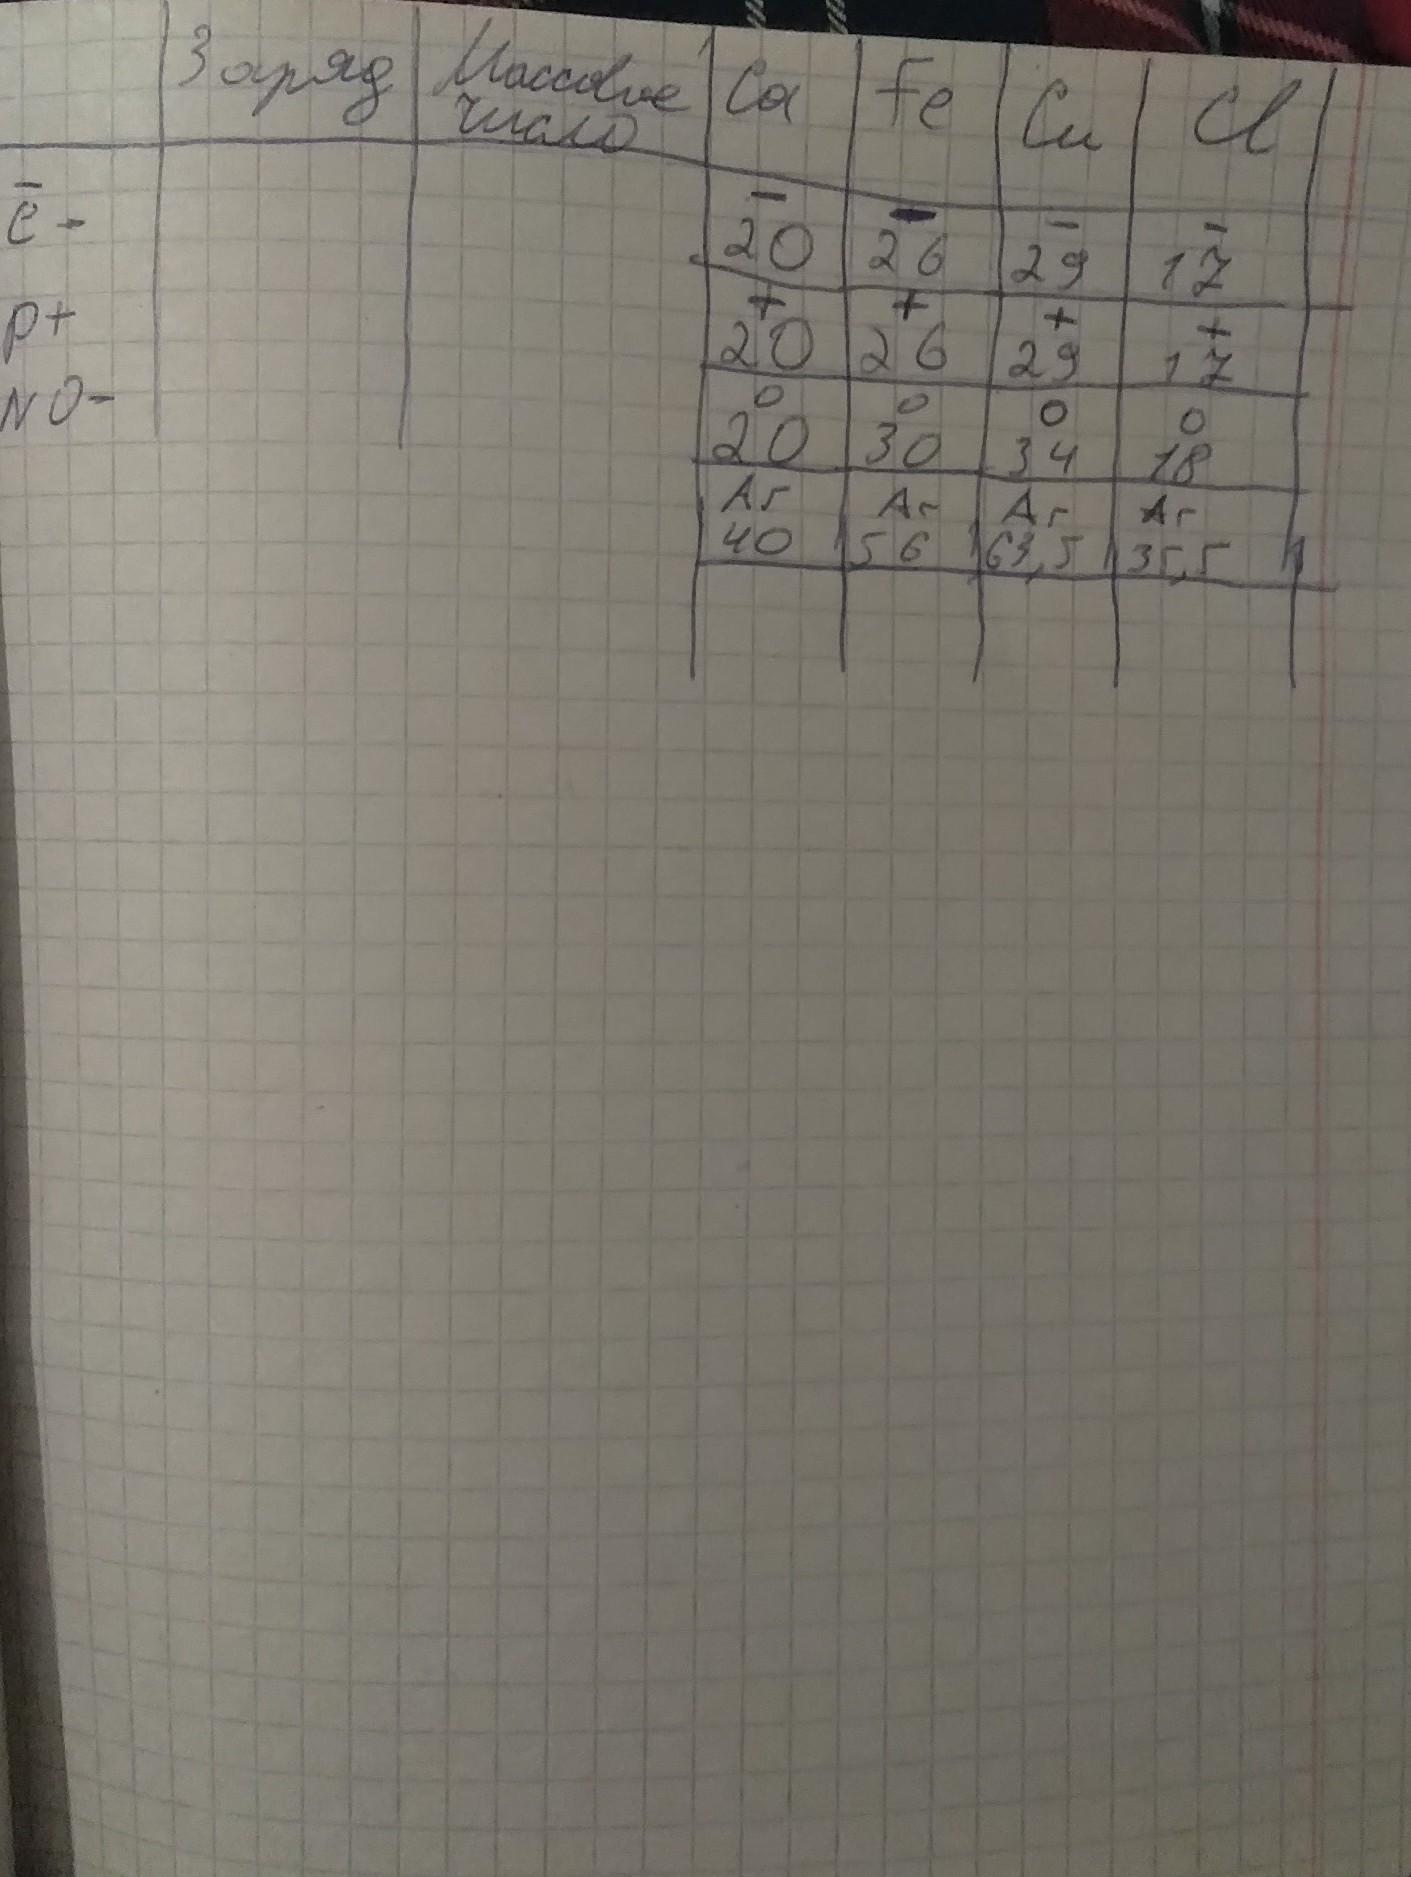 Заряд Массовое число Ca Fe Cu Cl
e̅ - 2̅0 2̅6 2̅9 1̅7
p+ +20 +26 +29 +17
N0- 0 20 0 30 0 34 0 18
Ar Ar Ar Ar
40 56 63,5 35,5